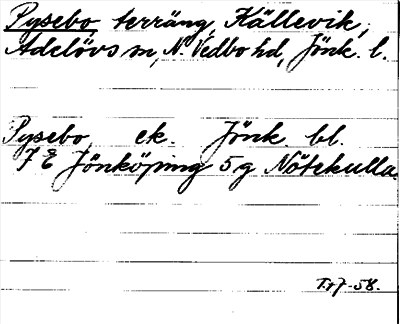 Pysebo, terräng, Källevik,
Adelövs sn, N. Vedbo hd, Jönk. l.
Pysebo ek. Jönk. bl.
7 E Jönköping 5 g Nötekulla.